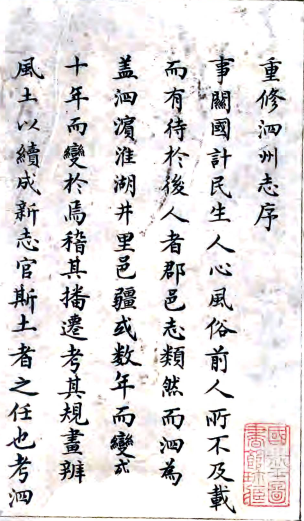 重修泗州志序
事關國計民生人心風俗前人所不及載
而有待於後人者郡邑志類然而泗為
盖泗濱淮湖井里邑疆或数年而變或
十年而變於焉稽其播遷考其規畫辨
風土以續成新志官斯土者之任也考泗